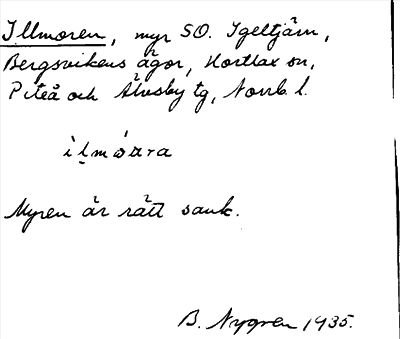 Illmoren, myr SO. Igeltjärn,
Bergsvikens ägor, Hortlax sn,
Piteå och Älvsby tg, Norrb. l.
Myren är rätt sank.
B. Nygren 1935.